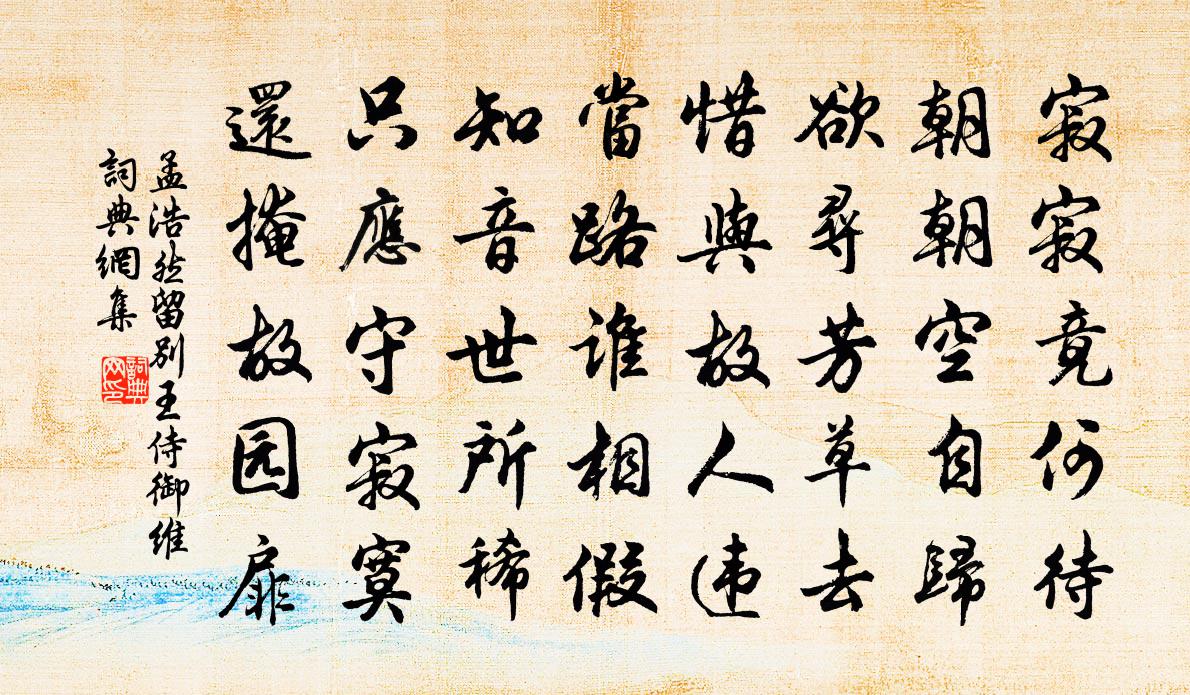 寂寂竟何待
朝朝空自歸
欲尋芳草去
惜與故人违
當路誰相假
知音世所稀
只應守寂寞
還掩故园扉
孟浩然留別王侍御维
詞典網集
詞典
网印